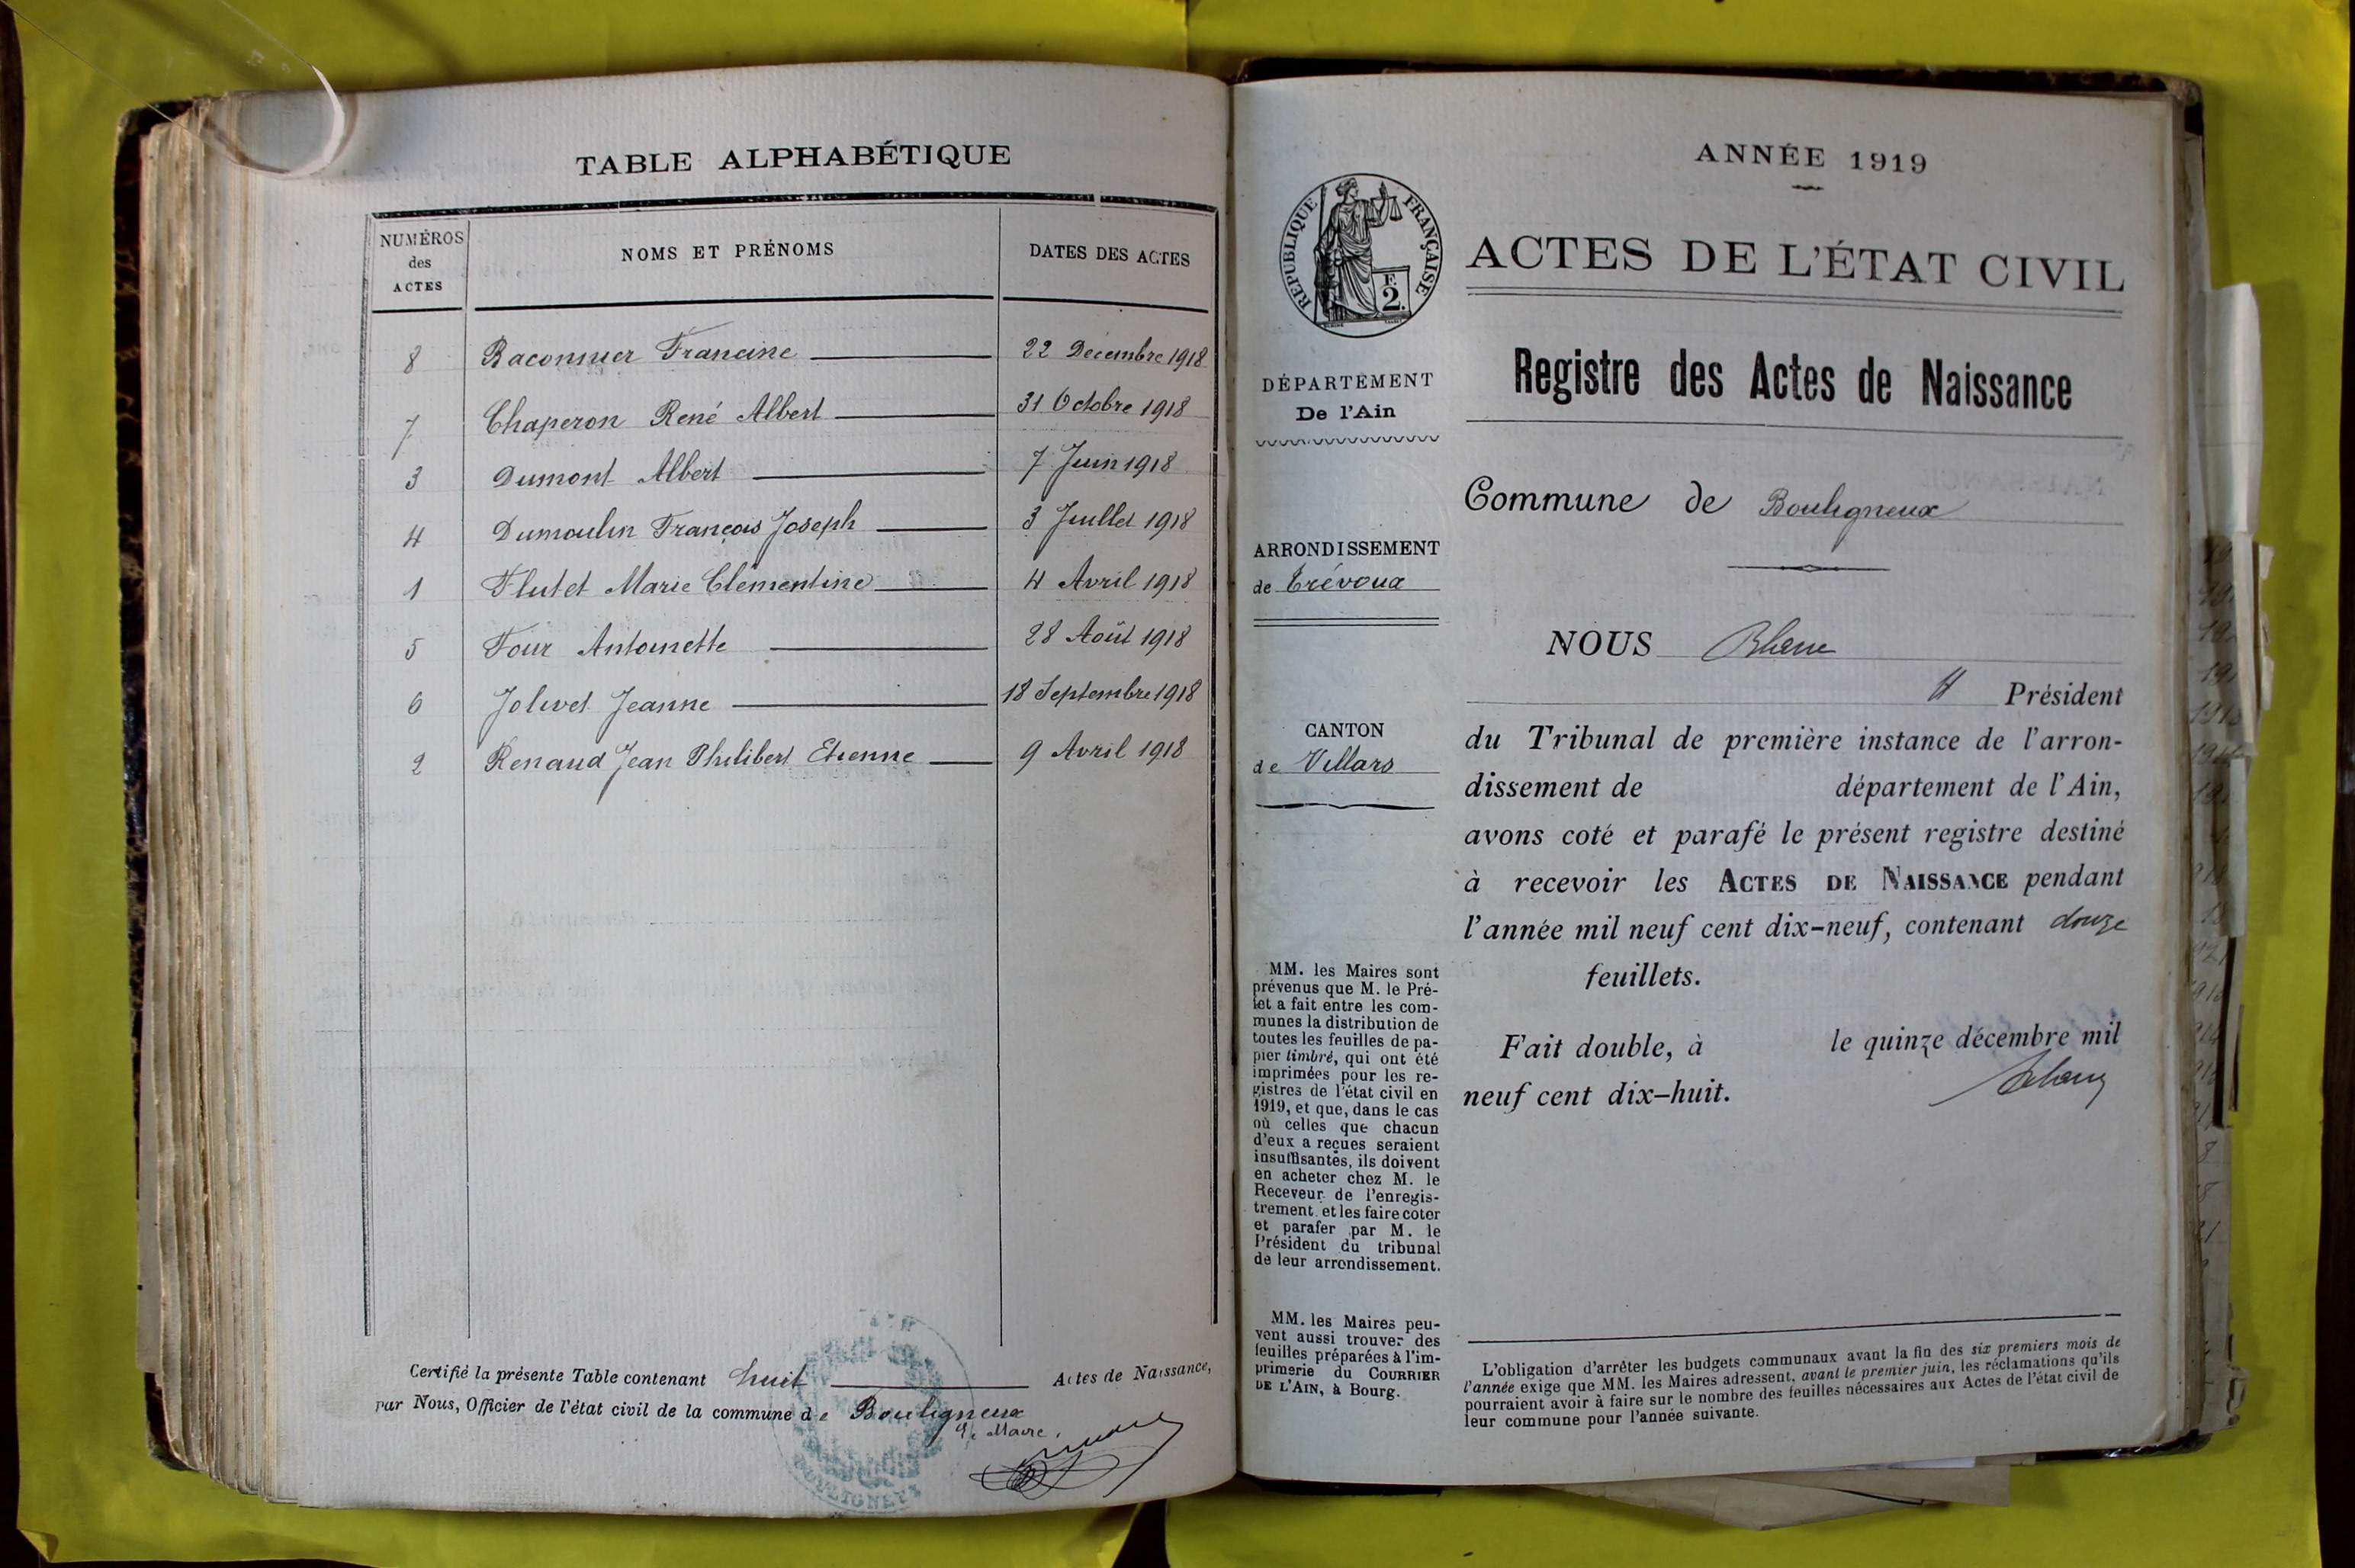 TABLE ALPHABÉTIQUE
NUMÉROS
des
ACTES
NOMS ET PRÉNOMS
DATES DES ACTES
8 Raconnier Francine 22 Décembre 1918
7 Chaperon René Albert 31 Octobre 1918
3 Dumont Albert 7 Juin 1918
4 Dumoulin François Joseph 3 Juillet 1918
1 Flutet Marie Clémentine 4 Avril 1918
5 Four Antoinette 28 Août 1918
6 Jolivet Jeanne 18 Septembre 1918
2 Renaud Jean Philibert Etienne 9 Avril 1918
Certifié la présente Table contenant huit Actes de Naissance,
par Nous, Officier de l'état civil de la commune de Bouligneux
Le Maire,
BOULIGNEUX
RÉPUBLIQUE FRANÇAISE
F.
2.
DÉPARTEMENT
De l'Ain
ARRONDISSEMENT
de Trévoux
CANTON
de Villars
MM. les Maires sont
prévenus que M. le Pré-
fet a fait entre les com-
munes la distribution de
toutes les feuilles de pa-
pier timbré, qui ont été
imprimées pour les re-
gistres de l'état civil en
1919, et que, dans le cas
où celles que chacun
d'eux a reçues seraient
insuffisantes, ils doivent
en acheter chez M. le
Receveur de l'enregis-
trement et les faire coter
et parafer par M. le
Président du tribunal
de leur arrondissement.
MM. les Maires peu-
vent aussi trouver des
feuilles préparées à l'im-
primerie du COURRIER
DE L'AIN, à Bourg.
ANNÉE 1919
ACTES DE L'ÉTAT CIVIL
Registre des Actes de Naissance
Commune de Bouligneux
NOUS Blanc
Président
du Tribunal de première instance de l'arron-
dissement de département de l'Ain,
avons coté et parafé le présent registre destiné
à recevoir les ACTES DE NAISSANCE pendant
l'année mil neuf cent dix-neuf, contenant douze
feuillets.
Fait double, à le quinze décembre mil
neuf cent dix-huit.
L'obligation d'arrêter les budgets communaux avant la fin des six premiers mois de
l'année exige que MM. les Maires adressent, avant le premier juin, les réclamations qu'ils
pourraient avoir à faire sur le nombre des feuilles nécessaires aux Actes de l'état civil de
leur commune pour l'année suivante.